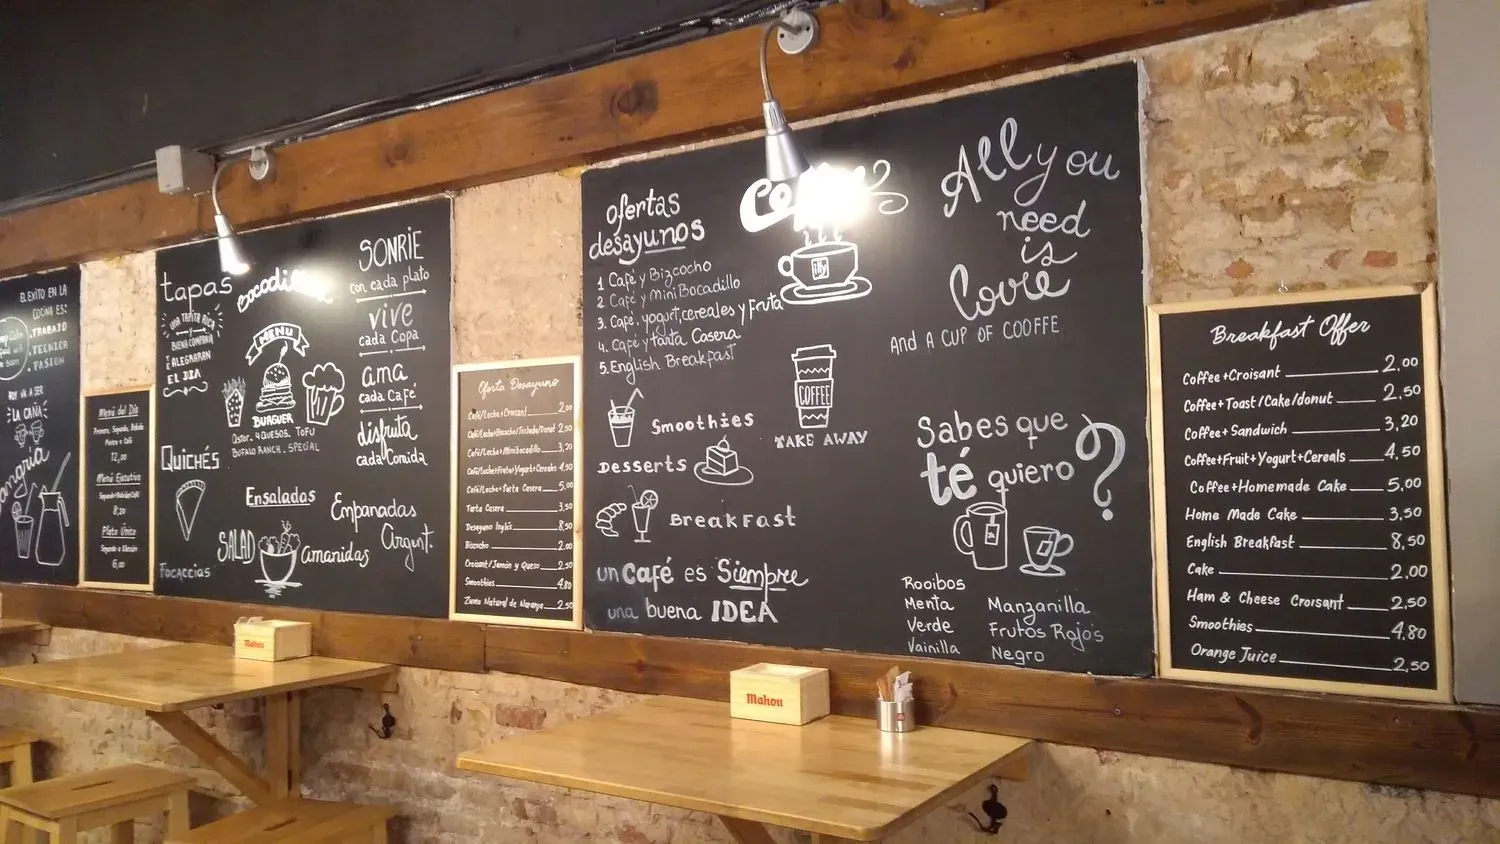 EL EXITO EN LA
COCINA ES:
.TRABAJO
.TECNICA
.PASION
HOY VA A SER
LA CAÑA
angria
Menú del Día
Primero, Segundo, Bebida
Postre o Café
12,00
Menú Ejecutivo
Segundo+Bebida+Café
8,20
Plato Único
Segundo a Elección
6,00
tapas
UNA TAPITA RICA
Y
BUENA COMPAÑIA
TE ALEGRARAN
EL DIA
MENU
BURGUER
4 QUESOS. TOFU
BUFALO RANCH. SPECIAL
SONRIE
con cada plato
vive
cada Copa
ama
cada Café
disfruta
cada Comida
QUICHÉS
Ensaladas
SALAD
Empanadas
Argent.
amanidas
FOCACCIAS
Oferta Desayuno
Café/Leche+Croisant 2,00
Café/Leche+Bizcocho/Tostada/Donut 2,50
Café/Leche+Minibocadillo 3,20
Café/Leche+Fruta+Yogurt+Cereales 4,50
Café/Leche+Tarta Casera 5,00
Tarta Casera 3,50
Desayuno Inglés 8,50
Bizcocho 2,00
Croisant/Jamón y Queso 2,50
Smoothies 4,80
Zumo Natural de Naranja 2,50
ofertas
desayunos
1 Café y Bizcocho
2 Café y MiniBocadillo
3. Café, yogurt, cereales y Fruta
4. Café y tarta Casera
5. English Breakfast
illy
Smoothies
Desserts
COFFEE
TAKE AWAY
BreakFast
un Café es Siempre
una buena IDEA
All you
need
is
Love
And A CUP OF COOFFE
Sabes que
té quiero?
Rooibos
Menta
Verde
Vainilla
Manzanilla
Frutos Rojos
Negro
Breakfast Offer
Coffee+Croisant 2,00
Coffee+Toast/Cake/donut 2,50
Coffee+Sandwich 3,20
Coffee+Fruit+Yogurt+Cereals 4,50
Coffee+Homemade Cake 5,00
Home Made Cake 3,50
English Breakfast 8,50
Cake 2,00
Ham & Cheese Croisant 2,50
Smoothies 4,80
Orange Juice 2,50
Mahou
Mahou